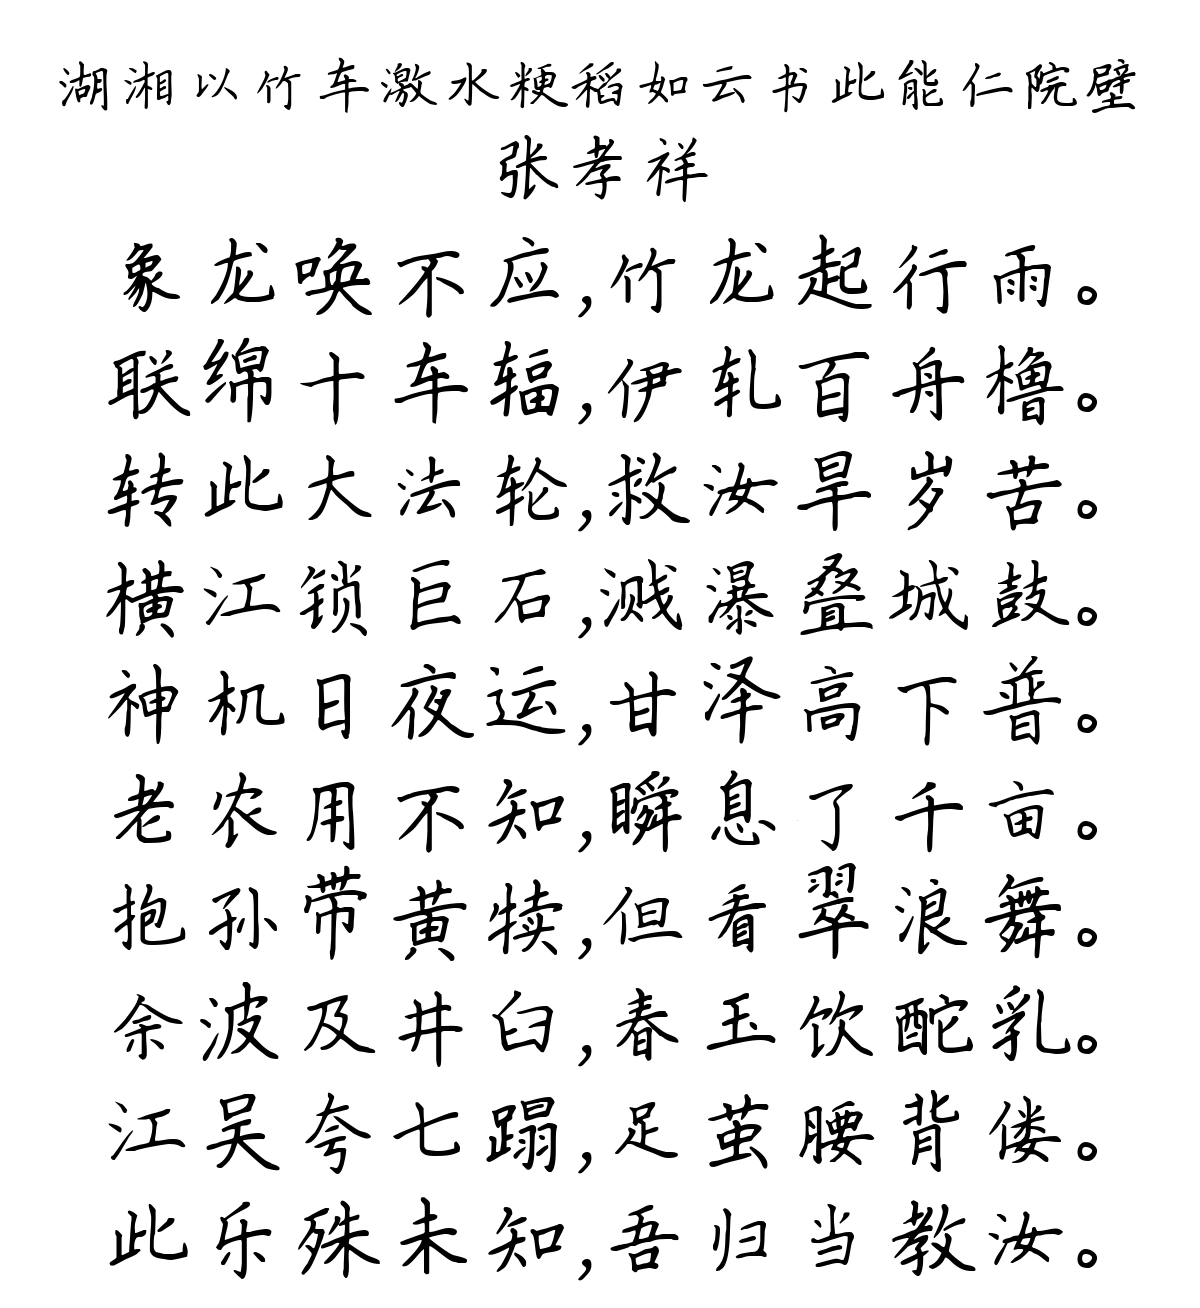 湖湘以竹车激水粳稻如云书此能仁院壁
张孝祥
象龙唤不应,竹龙起行雨。
联绵十车辐,伊轧百舟橹。
转此大法轮,救汝旱岁苦。
横江锁巨石,溅瀑叠城鼓。
神机日夜运,甘泽高下普。
老农用不知,瞬息了千亩。
抱孙带黄犊,但看翠浪舞。
余波及井臼,春玉饮酡乳。
江吴夸七蹋,足茧腰背偻。
此乐殊未知,吾归当教汝。